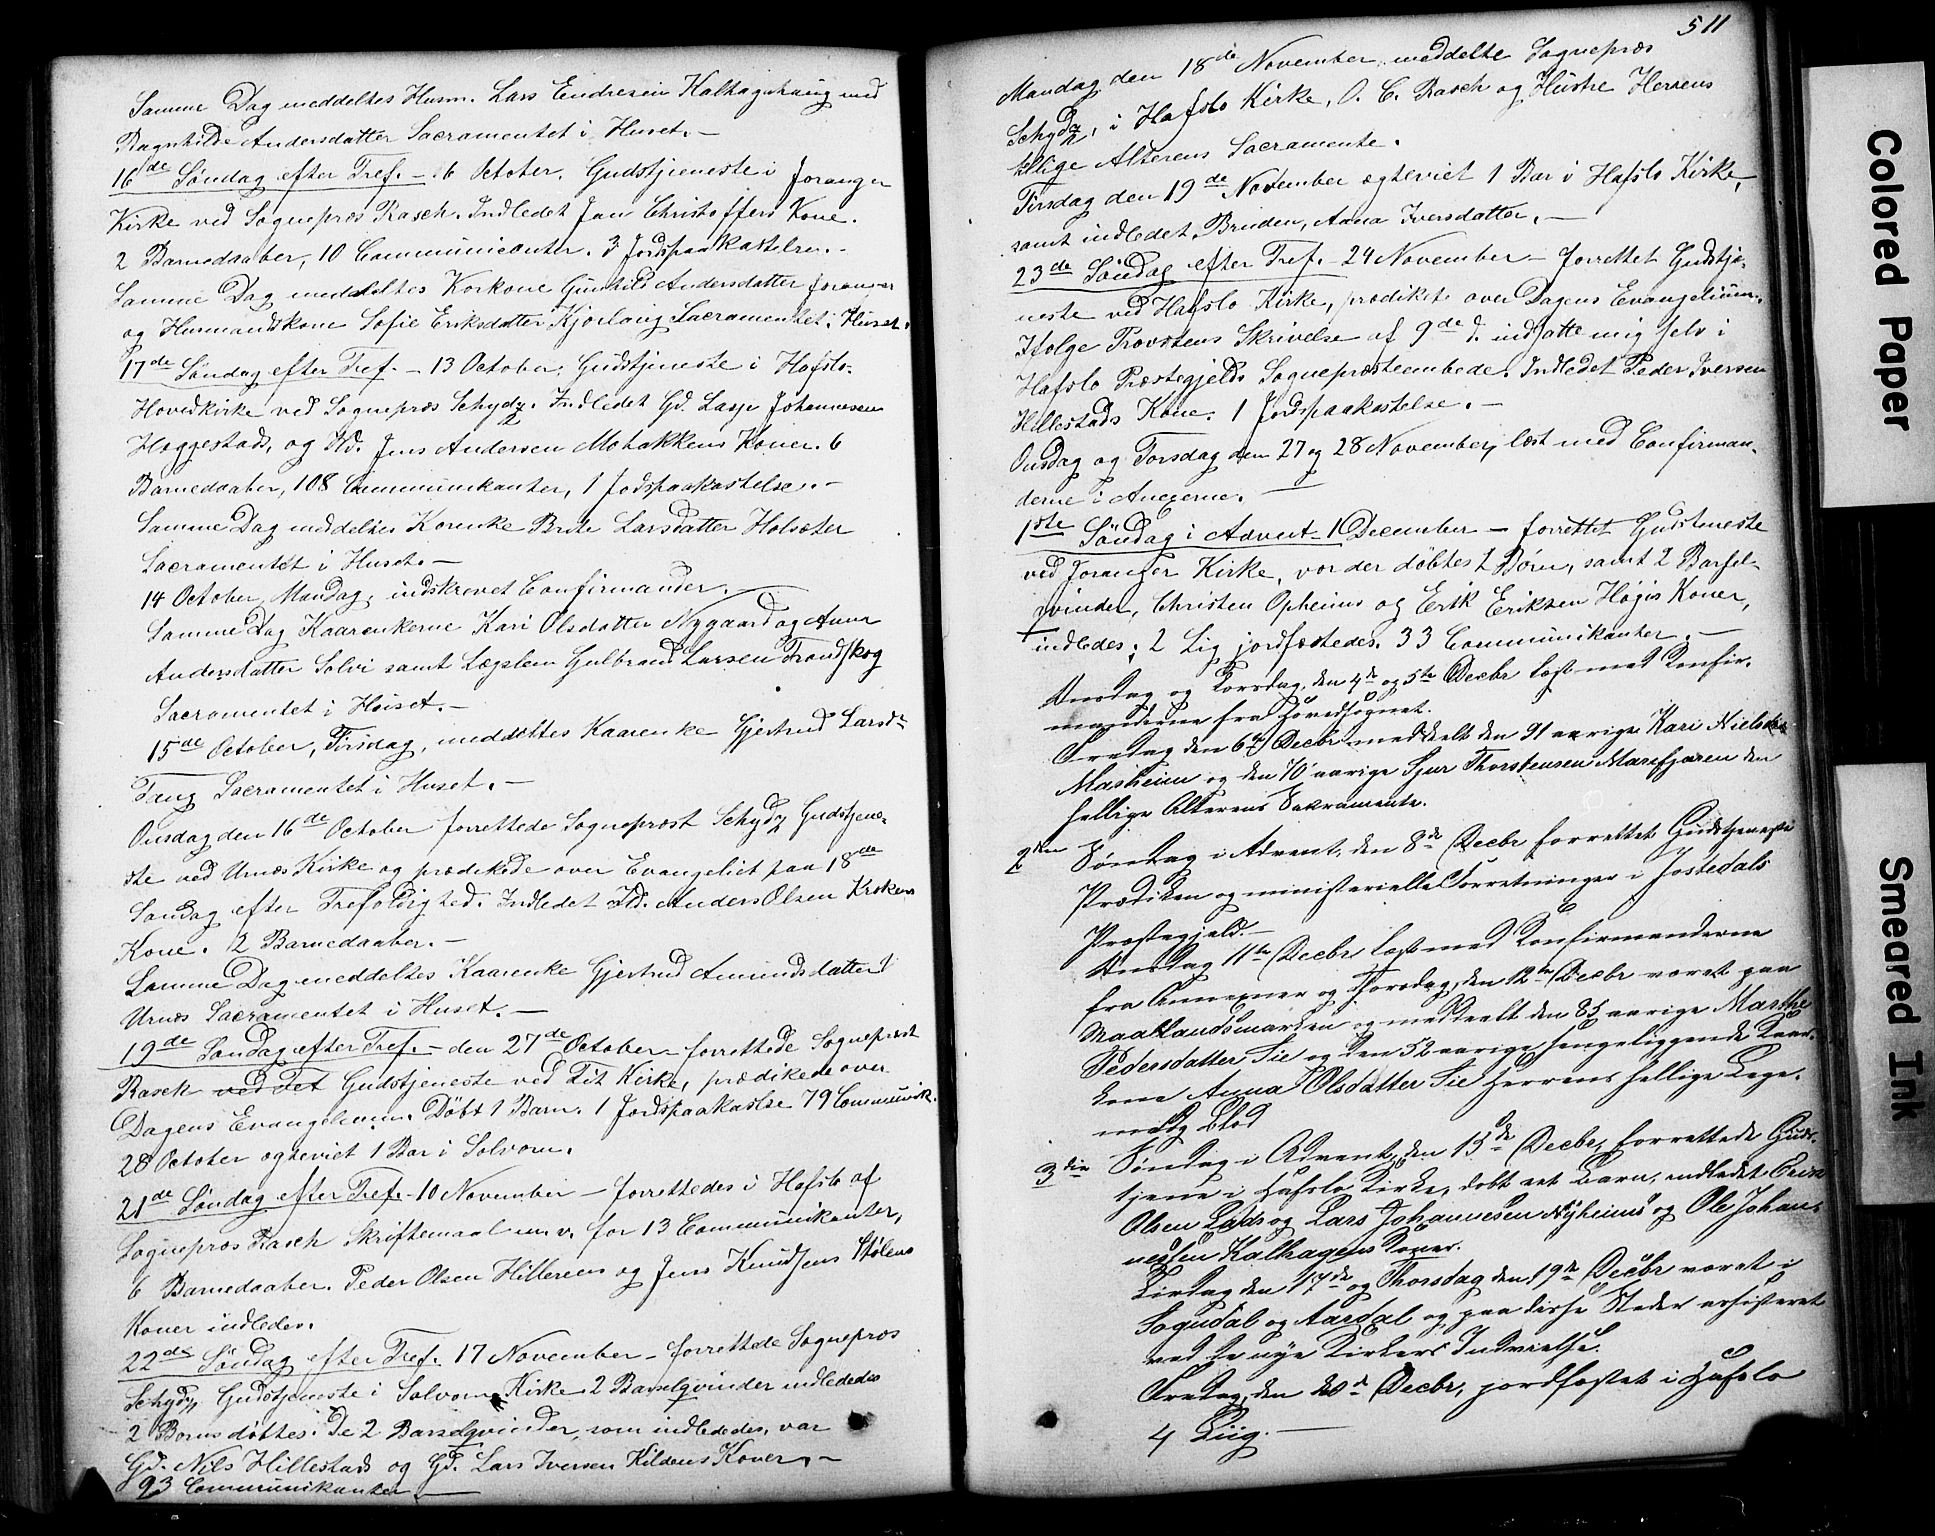 Samme Dag meddeltes Husm. Lars Endresen Kalhagehaug med
Ragnhilde Andersdatter Sacramentet i Huset. –
16de Søndag efter Tref. – 6 October. Gudstjeneste i Joranger
Kirke ved Sognepræs Rasch. Indledet Jan Christoffers Kone.
2 Barnedaaber, 10 Communicanter. 3 Jordspaakastelse. –
Samme Dag meddeltes Korkone Gunhild Andersdatter Joranger
og Husmandskone Sofie Eriksdatter Kjørlaug Sacramentet i Huset.
17de Søndag efter Tref. – 13 October. Gudstjeneste i Hafslo
Hovedkirke ved Sognepræs Schydz. Indledet Gd. Lasse Johannesen
Heggestads, og Hd. Jens Andersen Mohakkens Koner. 6
Barnedaaber, 108 Communikanter, 1 Jodspaakastelse. –
Samme Dag meddeltes Korenke Brite Larsdatter Holsæter
Sacramentet i Huset. –
14 October, Mandag, indskrevet Confirmander.
Samme Dag Kaarenkerne Kari Olsdatter Nygaard og Anna
Andersdatter Solvi samt Lægslem Gulbrand Larsen Frandskog
Sacramentet i Huset. –
15de October, Tirsdag, meddeltes Kaarenke Gjertrud Larsdr
Tang Sacramentet i Huset. –
Onsdag den 16de October forrettede Sogneprest Schydz Gudstjene-
ste ved Urnæs Kirke og prædikede over Evangeliet paa 18de
Søndag efter Trefoldighed. Indledet Hd. Anders Olsen Krokens
Kone. 2 Barnedaaber. –
Samme Dag meddeltes Kaarenke Gjertrud Amundsdatter
Urnæs Sacramentet i Huset. –
19de Søndag efter Tref. – den 27de October – forrettede Sogneprest
Rasch ved Fet Gudstjeneste ved Fet Kirke, prædikede over
Dagens Evangelium. Døbt 1 Barn. 1 Jordspaakastelse 79 Communik.
28 October ægteviet 1 Par i Solvorn.
21de Søndag efter Tref. – 10 November – forrettedes i Hafslo af
Sognepræs Rasch Skriftemaal m. v. for 13 Communikanter,
6 Barnedaaber. Peder Olsen Hillereens og Jens Knudsens Stølens
Koner indledes.
22de Søndag efter Tref. 17 November – forrettede Sognepræs
Schydz Gudstjeneste i Solvorn Kirke 2 Barselqvinder indlededes
2 Børn døbtes. De 2 Barselqvinder, som indlededes, var
Gd. Nils Hillestads og Gd. Lars Iversen Kildens Koner. –
93 Communikanter. –
511
Mandag den 18de November meddelte Sognepræs
Schydz, i Hafslo Kirke, O. C. Rasch og Hustre Herrens
hellige Alterens Sacramente.
Tirsdag den 19de November ægteviet 1 Par i Hafslo Kirke,
samt indledet Bruden, Anna Iversdatter. –
23de Søndag efter Tref. – 24 November – forrettet Gudstje-
neste ved Hafslo Kirke, prædiket over Dagens Evangelium,
Ifølge Provstens Skrivelse af 9de d. indsatte mig selv i
Hafslo Præstegjelds Sognepræsteembede. Indledet Peder Iversen
Hillestads Kone. 1 Jordspaakastelse. –
Onsdag og Torsdag den 27 og 28 November, læst med Confirman-
derne i Anexerne. –
1ste Søndag i Advent – 1 December – forrettet Gudstjeneste
ved Joranger Kirke, vor der døbtes 2 Børn, samt 2 Barsel-
qvinder, Christen Opheims og Erik Eriksen Høgis Koner,
indledes; 2 Lig jordfæstedes. 33 Communikanter. –
Onsdag og Torsdag, den 4de og 5te Decbr læst med Konfir-
manderne fra Hovedsognet.
Fredag den 6te Decbr meddeelt den 91 aarige Kari Nielsdtr
Masheim og den 70 aarige Sjur Thorstensen Marefjæren den
hellige Alterens Sakramente.
2den Søndag i Advent, den 8de Decbr forrettet Gudstjeneste
Prædiken og ministerielle Forretninger i Jostedals
Præstegjeld. –
Onsdag 11te Decbr læst med Konfirmanderne
fra Annexerne og Thorsdag, den 12te Decbr været paa
og meddeelt den 83 aarige Marthe
Pedersdatter Sie og den 52 aarige sengeliggende Kaar-
kone Anna Olsdatter Sie Herrens hellige Lege-
me og Blod
3die Søndag i Advent, den 15de Decbr, forrettede Guds-
tjene i Hafslo Kirke, døbt eet Barn, indledet
Olsen Lads og Lars Johannesen Nyheims og Ole Johan-
nessen Kalhagens Koner.
Tirsdag den 17de og Thorsdag den 19de Decbr været i
Sogndal og Aardal og paa disse Steder assisteret
ved de nye Kirkers Indvielse.
Fredag, den 20de Decbr, jordfæstet i Hafslo
4 Liig. –
Colored Paper
Smeared Ink